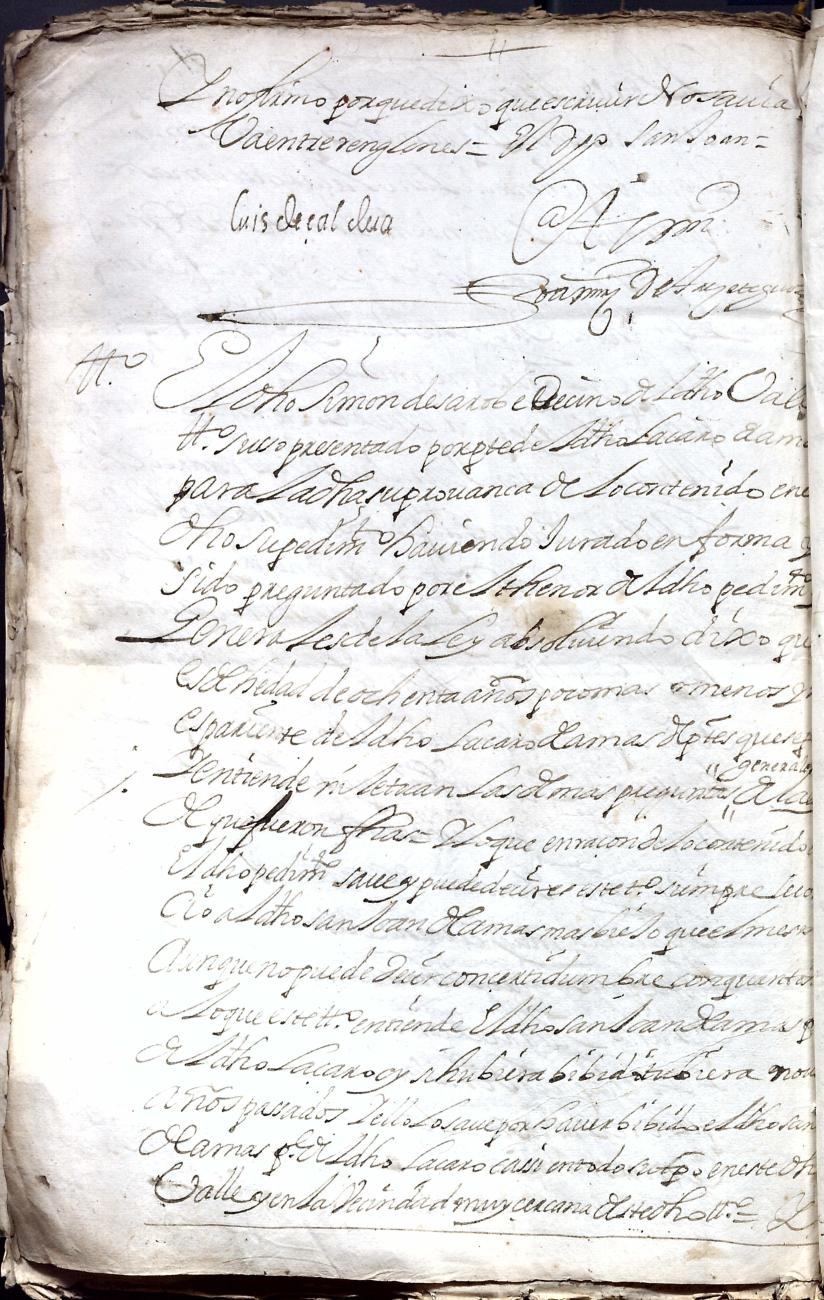 Y no firmo porque dixo que escriuir No sauia
Va entre renglones = El dho San Joan =
Luis de çaldua
@ A mi
Joannes de
tt.o El dho Simon de sarobe Vecino del dho Valle
tt.o suso presentado por pte del dho Lacaro damas
para la dha su prouanca de lo contenido en el
dho su pedimto hauiendo Jurado en forma y
sido preguntado por el thenor del dho pedimto
Generales de la Ley absoluiendo dixo que
es de hedad de ochenta años poco mas o menos y
es pariente del dho Lacaro damas de ptes que se
lentiende ni le tocan las demas preguntas generales de la
que fueron fhas = Y lo que en racon de lo contenido
El dho pedimto saue y puede decir es este tt.o siempre
cio al dho san Joan damas mas biejo que el mesmo
Aunque no puede decir con certidumbre con quantos
a lo que este tt.o entiende El dho san Joan damas
del dho Lacaro oy si hubiera bibido tubiera nou
años pasados Y ello lo saue por hauer bibido el dho san
damas pe del dho Lacaro casi en todo su tpo en este dho
Valle y en la Vecindad muy cercana deste dho tt.o = Y